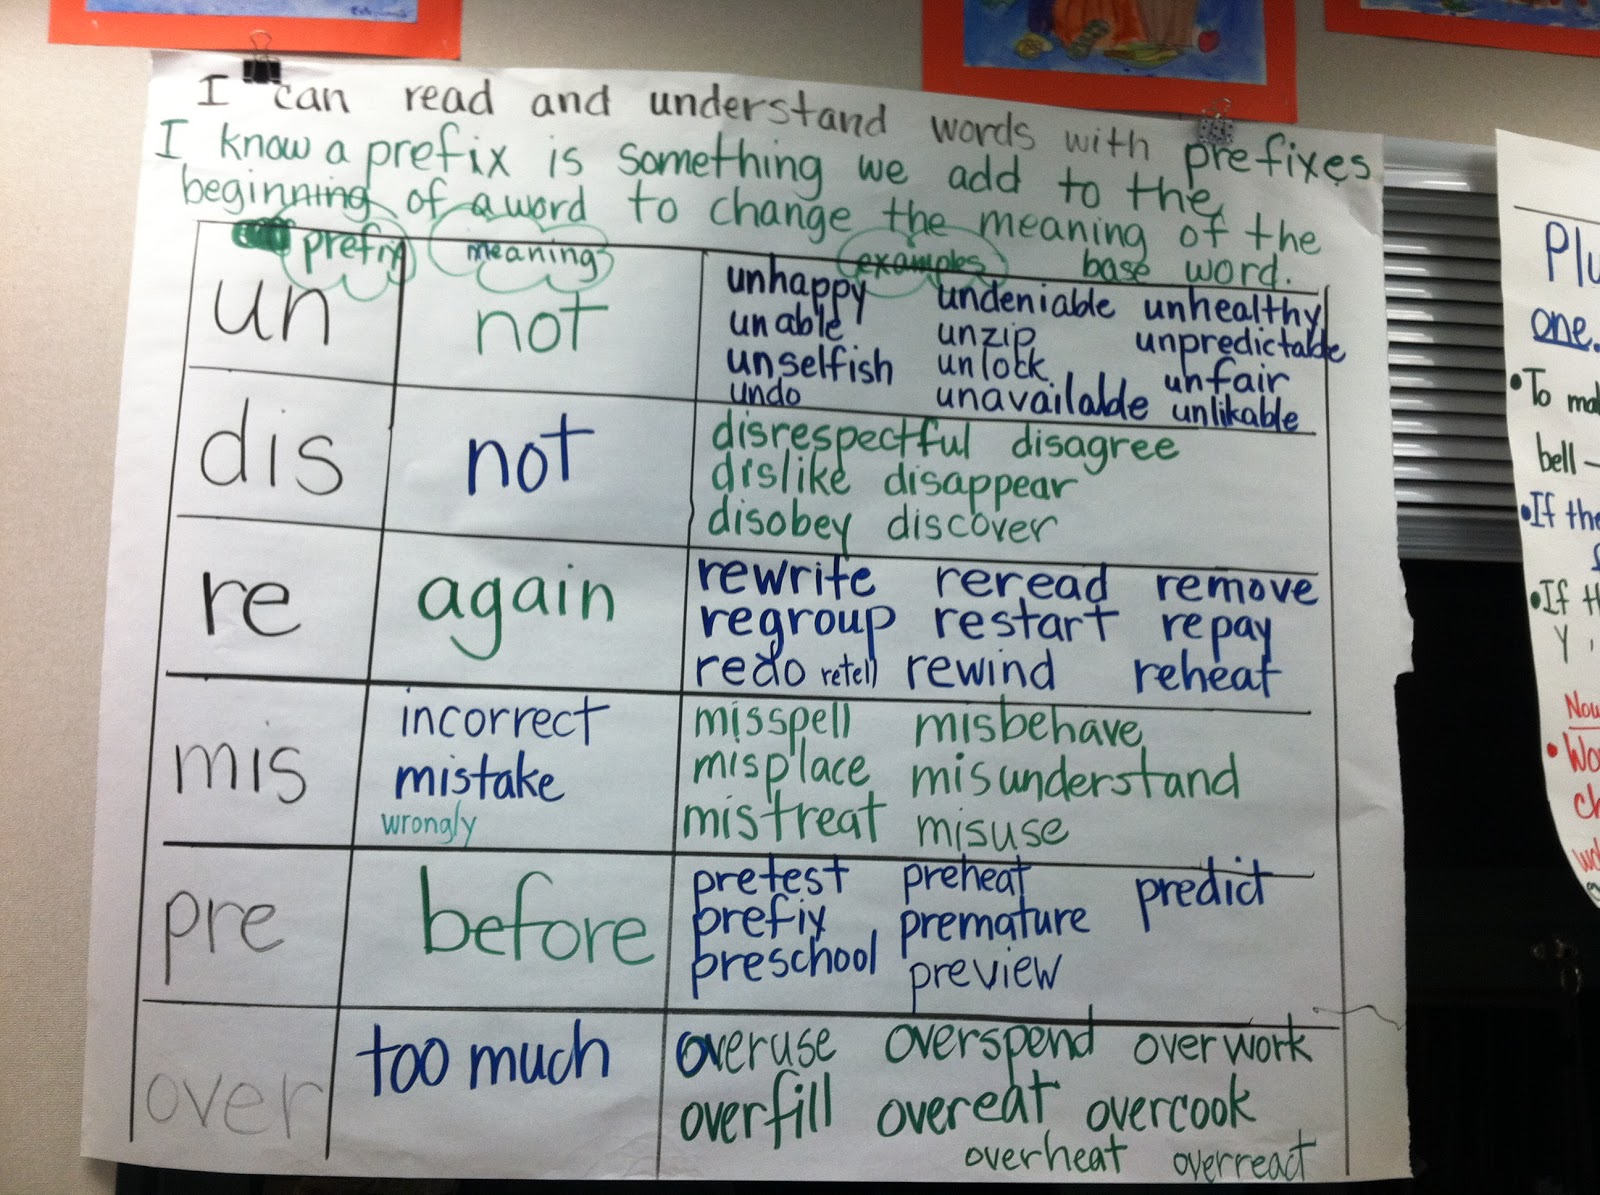 I can read and understand words with prefixes
I know a prefix is something we add to the
beginning of a word to change the meaning of the
base word.
prefix meaning examples
un not unhappy undeniable unhealthy
unable unzip unpredictable
unselfish unlock unfair
undo unavailable unlikable
dis not disrespectful disagree
dislike disappear
disobey discover
re again rewrite reread remove
regroup restart repay
redo retell rewind reheat
mis incorrect misspell misbehave
mistake misplace misunderstand
wrongly mistreat misuse
pre before pretest preheat predict
prefix premature
preschool preview
over too much overuse overspend overwork
overfill overeat overcook
overheat overreact
one.
• To
bell –
• If
• If